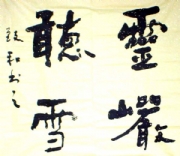 靈巖
聽雪